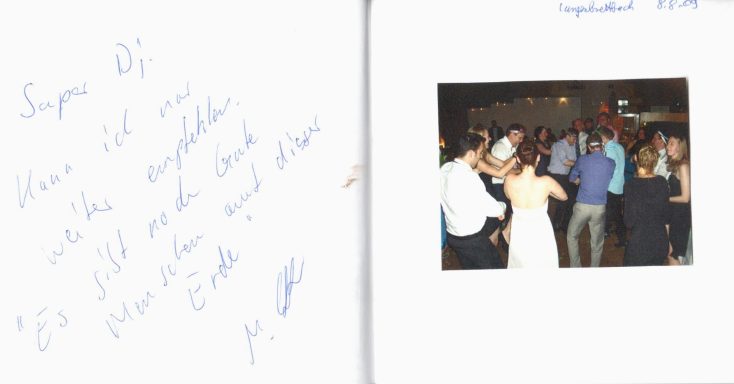 Super Dj.
Kann ich nur
weiter empfehlen.
"Es gibt noch Gute
Menschen auf dieser
Erde"
M.
8.8.09